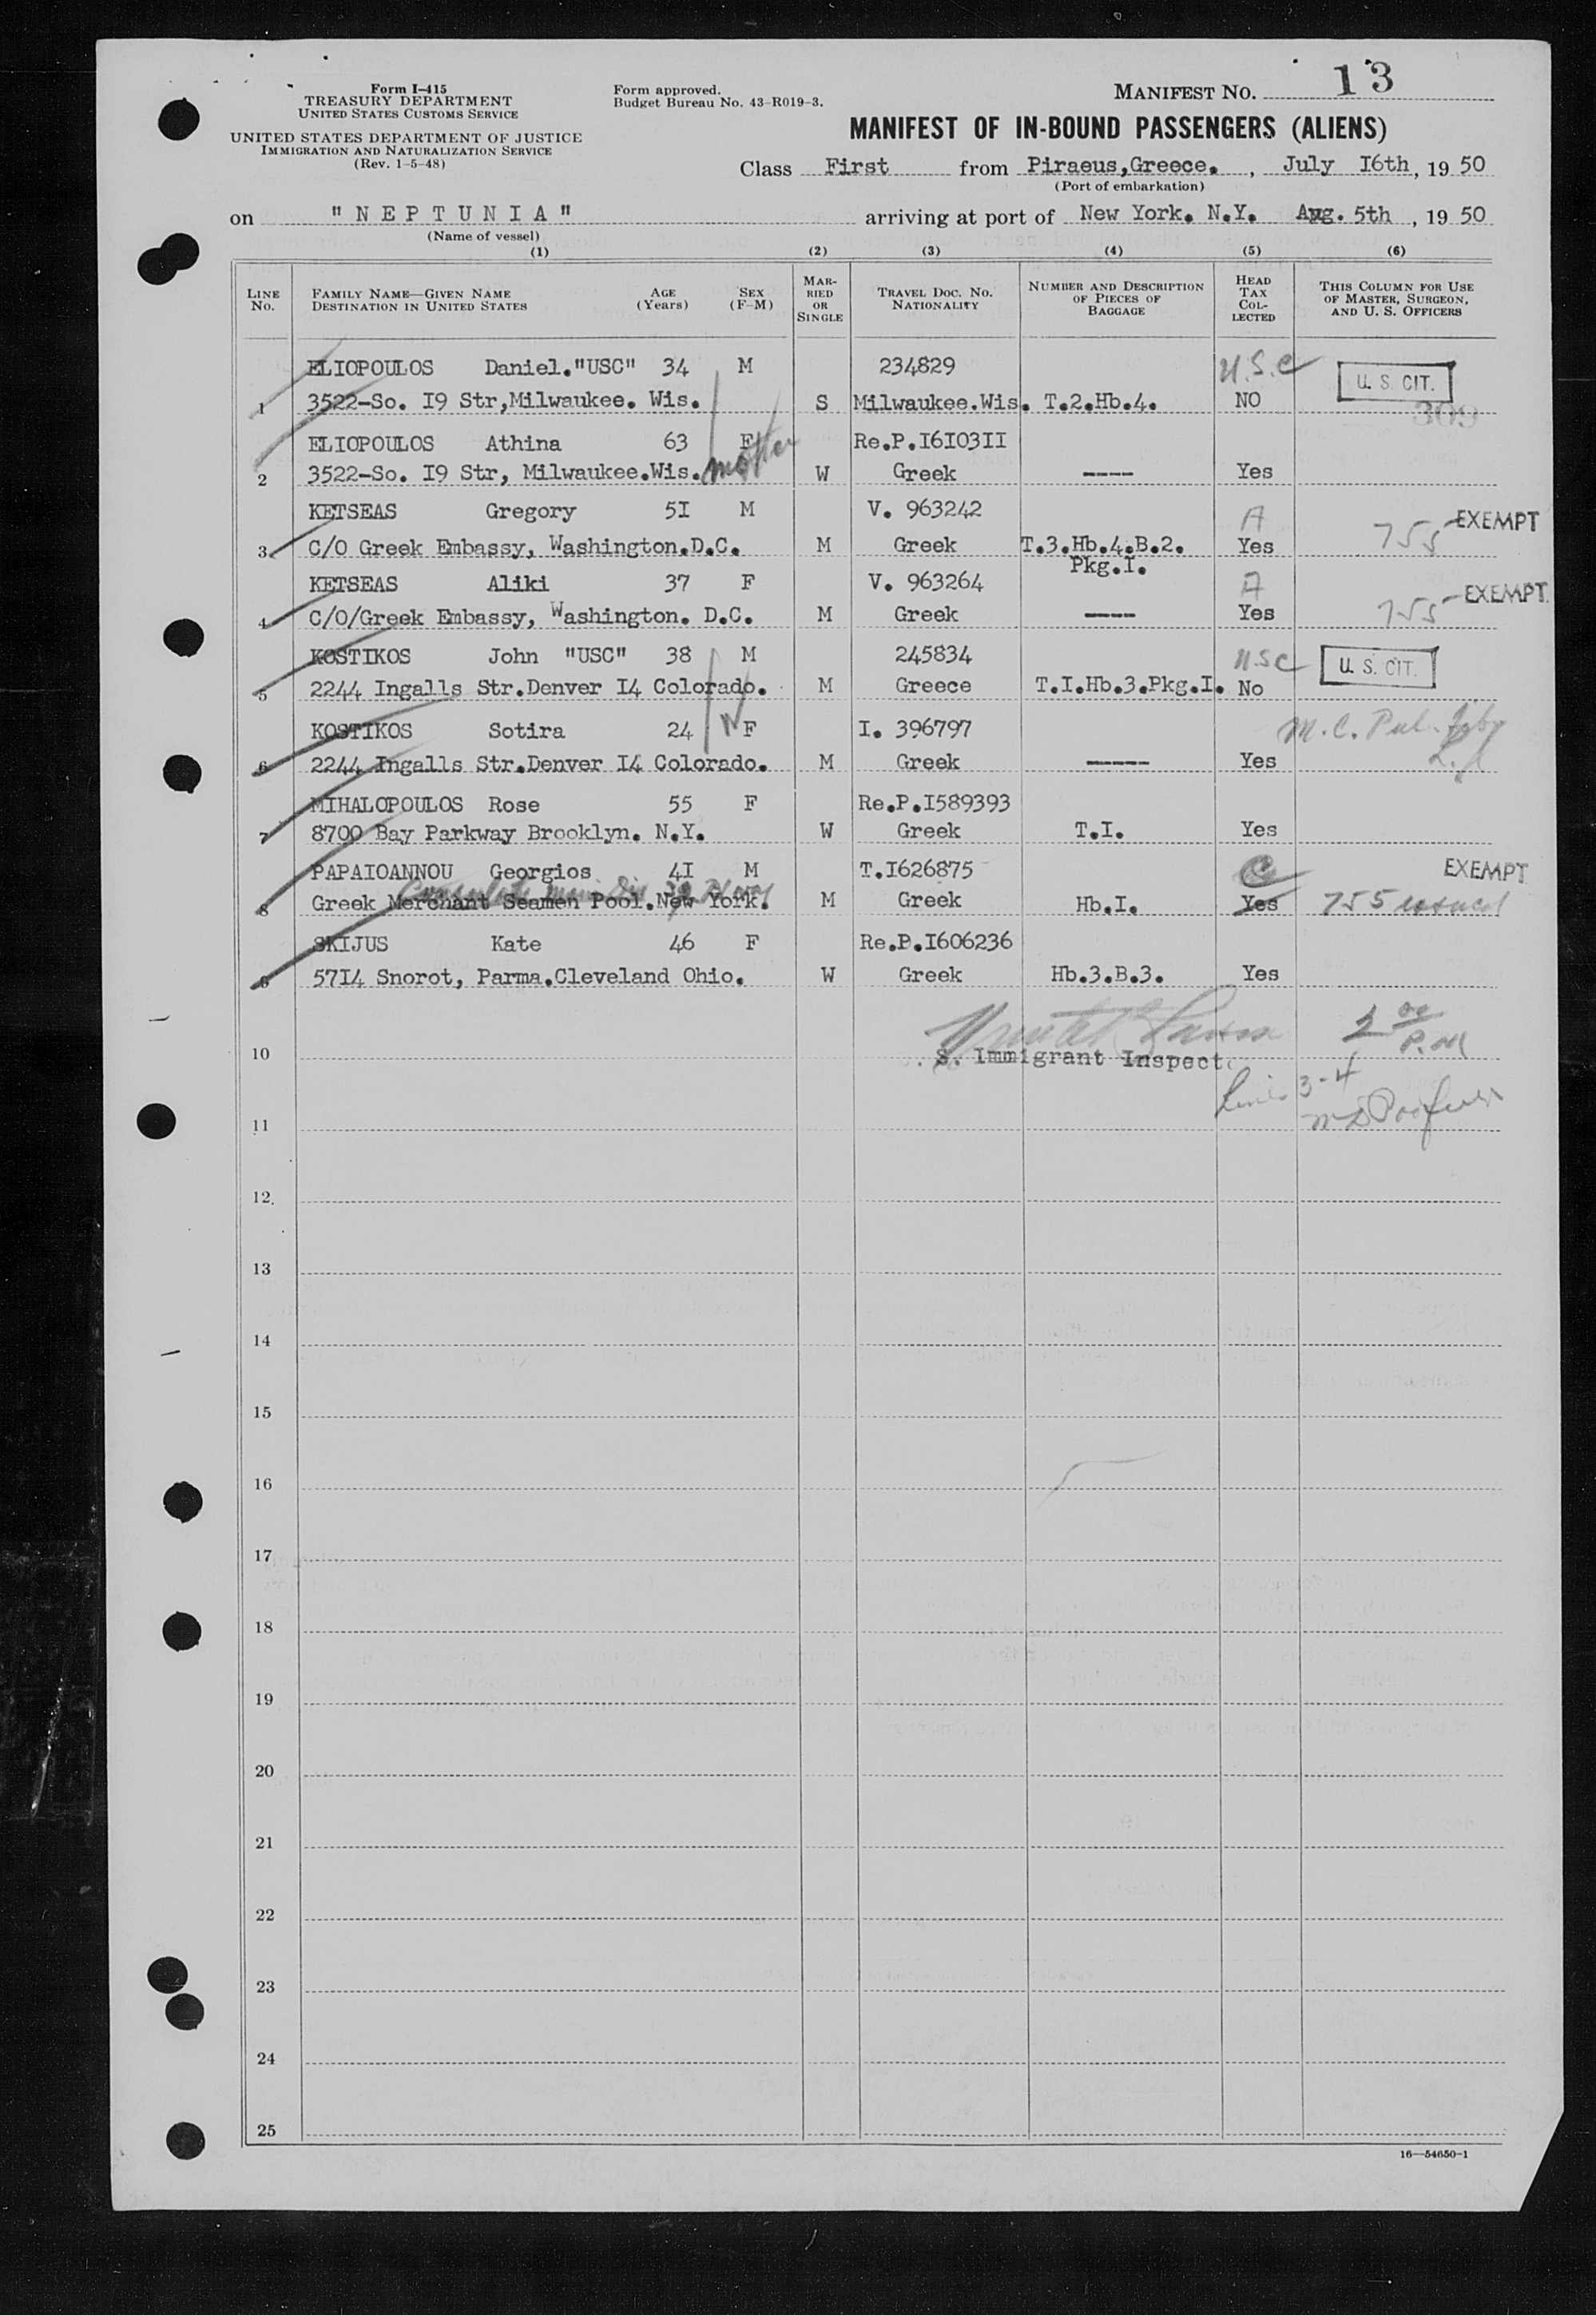 Form I-415
TREASURY DEPARTMENT
UNITED STATES CUSTOMS SERVICE
UNITED STATES DEPARTMENT OF JUSTICE
IMMIGRATION AND NATURALIZATION SERVICE
(Rev. 1-5-48)
Form approved.
Budget Bureau No. 43-R019-3.
MANIFEST NO. 13
MANIFEST OF IN-BOUND PASSENGERS (ALIENS)
Class First from Piraeus,Greece. , July I6th, 19 50
(Port of embarkation)
on "NEPTUNIA" arriving at port of New York. N.Y. Aug. 5th , 19 50
(Name of vessel)
(1) (2) (3) (4) (5) (6)
LINE No. FAMILY NAME—GIVEN NAME DESTINATION IN UNITED STATES AGE (Years) SEX (F-M) MARRIED OR SINGLE TRAVEL DOC. NO. NATIONALITY NUMBER AND DESCRIPTION OF PIECES OF BAGGAGE HEAD TAX COLLECTED THIS COLUMN FOR USE OF MASTER, SURGEON, AND U. S. OFFICERS
ELIOPOULOS Daniel."USC" 34 M 234829 U.S.C U. S. CIT.
1 3522-So. I9 Str,Milwaukee. Wis. S Milwaukee.Wis. T.2.Hb.4. NO 309
ELIOPOULOS Athina 63 F Re.P.I6I03II
2 3522-So. I9 Str, Milwaukee.Wis. mother W Greek ---- Yes
KETSEAS Gregory 5I M V. 963242 A EXEMPT
3 C/O Greek Embassy, Washington.D.C. M Greek T.3.Hb.4.B.2. Yes 755
Pkg.I.
KETSEAS Aliki 37 F V. 963264 A EXEMPT
4 C/O/Greek Embassy, Washington. D.C. M Greek ---- Yes 755
KOSTIKOS John "USC" 38 M 245834 USC U. S. CIT.
5 2244 Ingalls Str.Denver I4 Colorado. M Greece T.I.Hb.3.Pkg.I. No
KOSTIKOS Sotira 24 F I. 396797 M.C. Pul.
6 2244 Ingalls Str.Denver I4 Colorado. M Greek ----- Yes
MIHALOPOULOS Rose 55 F Re.P.I589393
7 8700 Bay Parkway Brooklyn. N.Y. W Greek T.I. Yes
PAPAIOANNOU Georgios 4I M T.I626875 EXEMPT
8 Greek Merchant Seamen Pool.New York. M Greek Hb.I. Yes 755 issued
SKIJUS Kate 46 F Re.P.I606236
9 57I4 Snorot, Parma.Cleveland Ohio. W Greek Hb.3.B.3. Yes
P.M
10 . S. Immigrant Inspect
Lines 3-4
11
12
13
14
15
16
17
18
19
20
21
22
23
24
25
16—54650-1